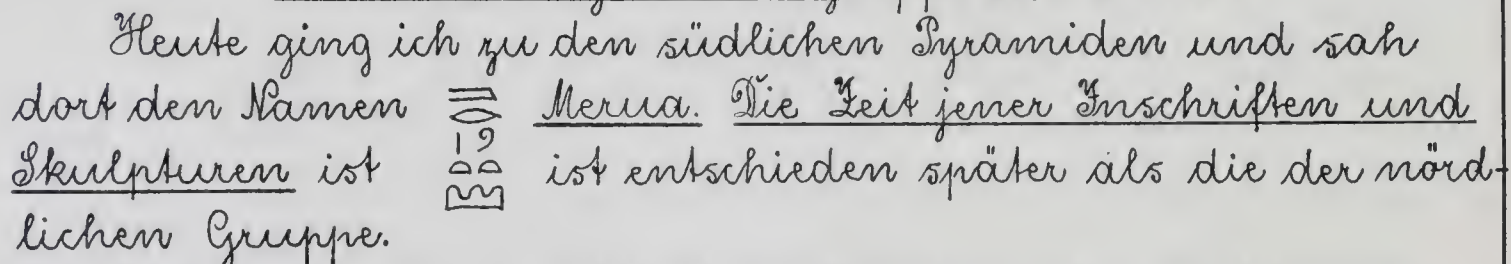 Heute ging ich zu den südlichen Pyramiden und sah
dort den Namen Merua. Die Zeit jener Inschriften und
Skulpturen ist ist entschieden später als die der nörd-
lichen Gruppe.